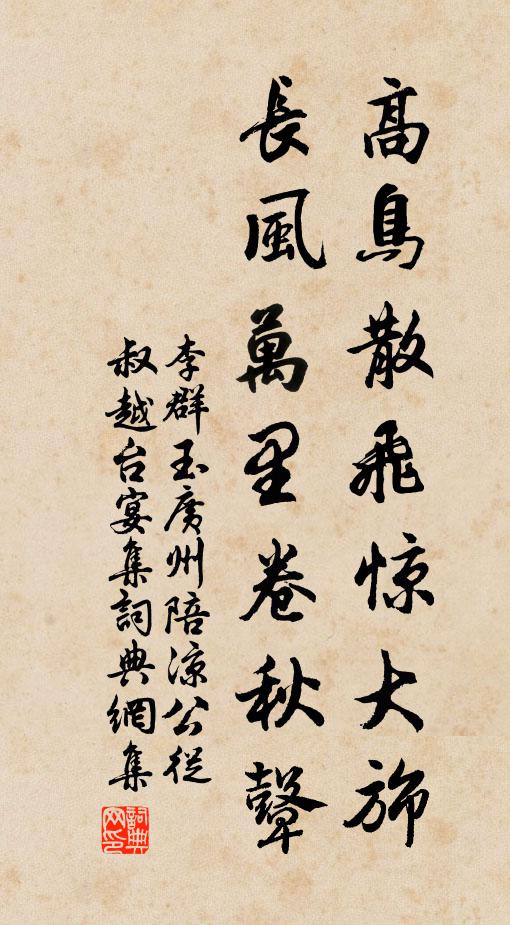 高鳥散飛惊大旆
長風萬里卷秋聲
李群玉廣州陪涼公從
叔越台宴集詞典網集
詞典网印